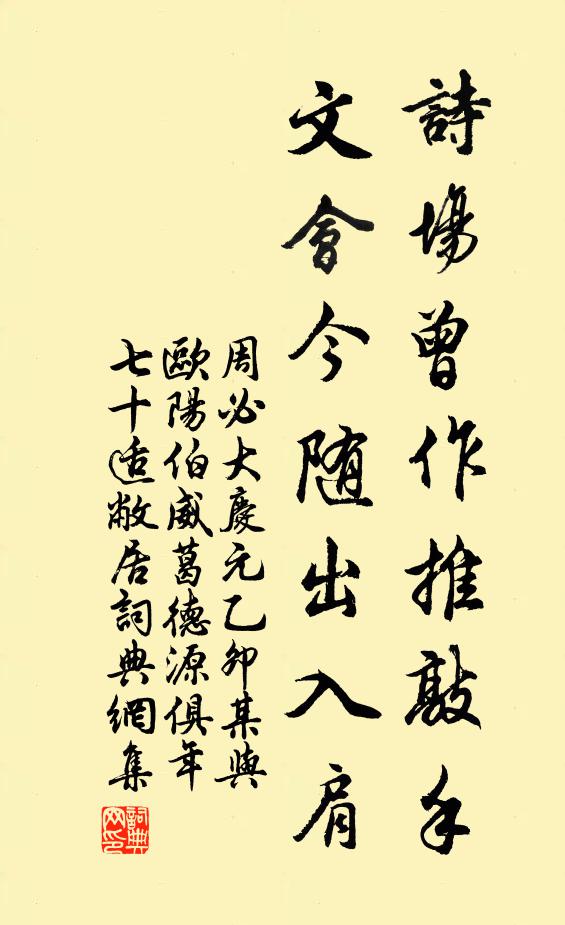 詩場曾作推敲手
文會今随出入肩
周必大慶元乙卯某與
歐陽伯威葛德源俱年
七十适敝居詞典網集
詞典网印